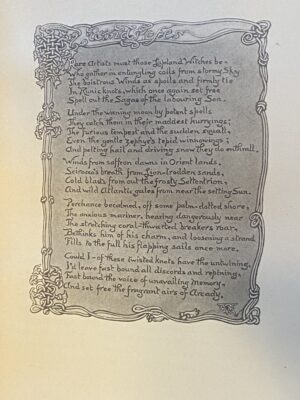 Wind Ropes
Rare Artists must those Lapland Witches be~
Who gather in entangling coils from stormy Sky
The boistrous Winds as spoils and firmly tie
In Runic knots, which once again set free
Spell out the Sagas of the labouring Son.
Under the waning moon by potent spells
They catch them in their maddest hurryings;
The furious tempest and the sudden squall,
Even the gentle zephyr's tepid winnowings;
And pelting hail and driving snow they do enthrall.
Winds from saffron dawns in Orient lands,
Scirocco's breath from Lion-trodden sands,
Cold blasts from out the frosty Settentrion;
And wild Atlantic gales from near the setting Sun.
Perchance becalmed, off some palm-dotted shore,
The anxious mariner, hearing dangerously near
The stretching coral-thwarted breakers roar,
Bethinks him of his charm, and loosening a strand
Fills to the full his flapping sails once more.
Could I - of these twisted knots have the untwining,
I'd leave fast bound all discords and repining,
Fast bound the voice of unavailing Memory-
And set free the fragrant airs of Arcady.